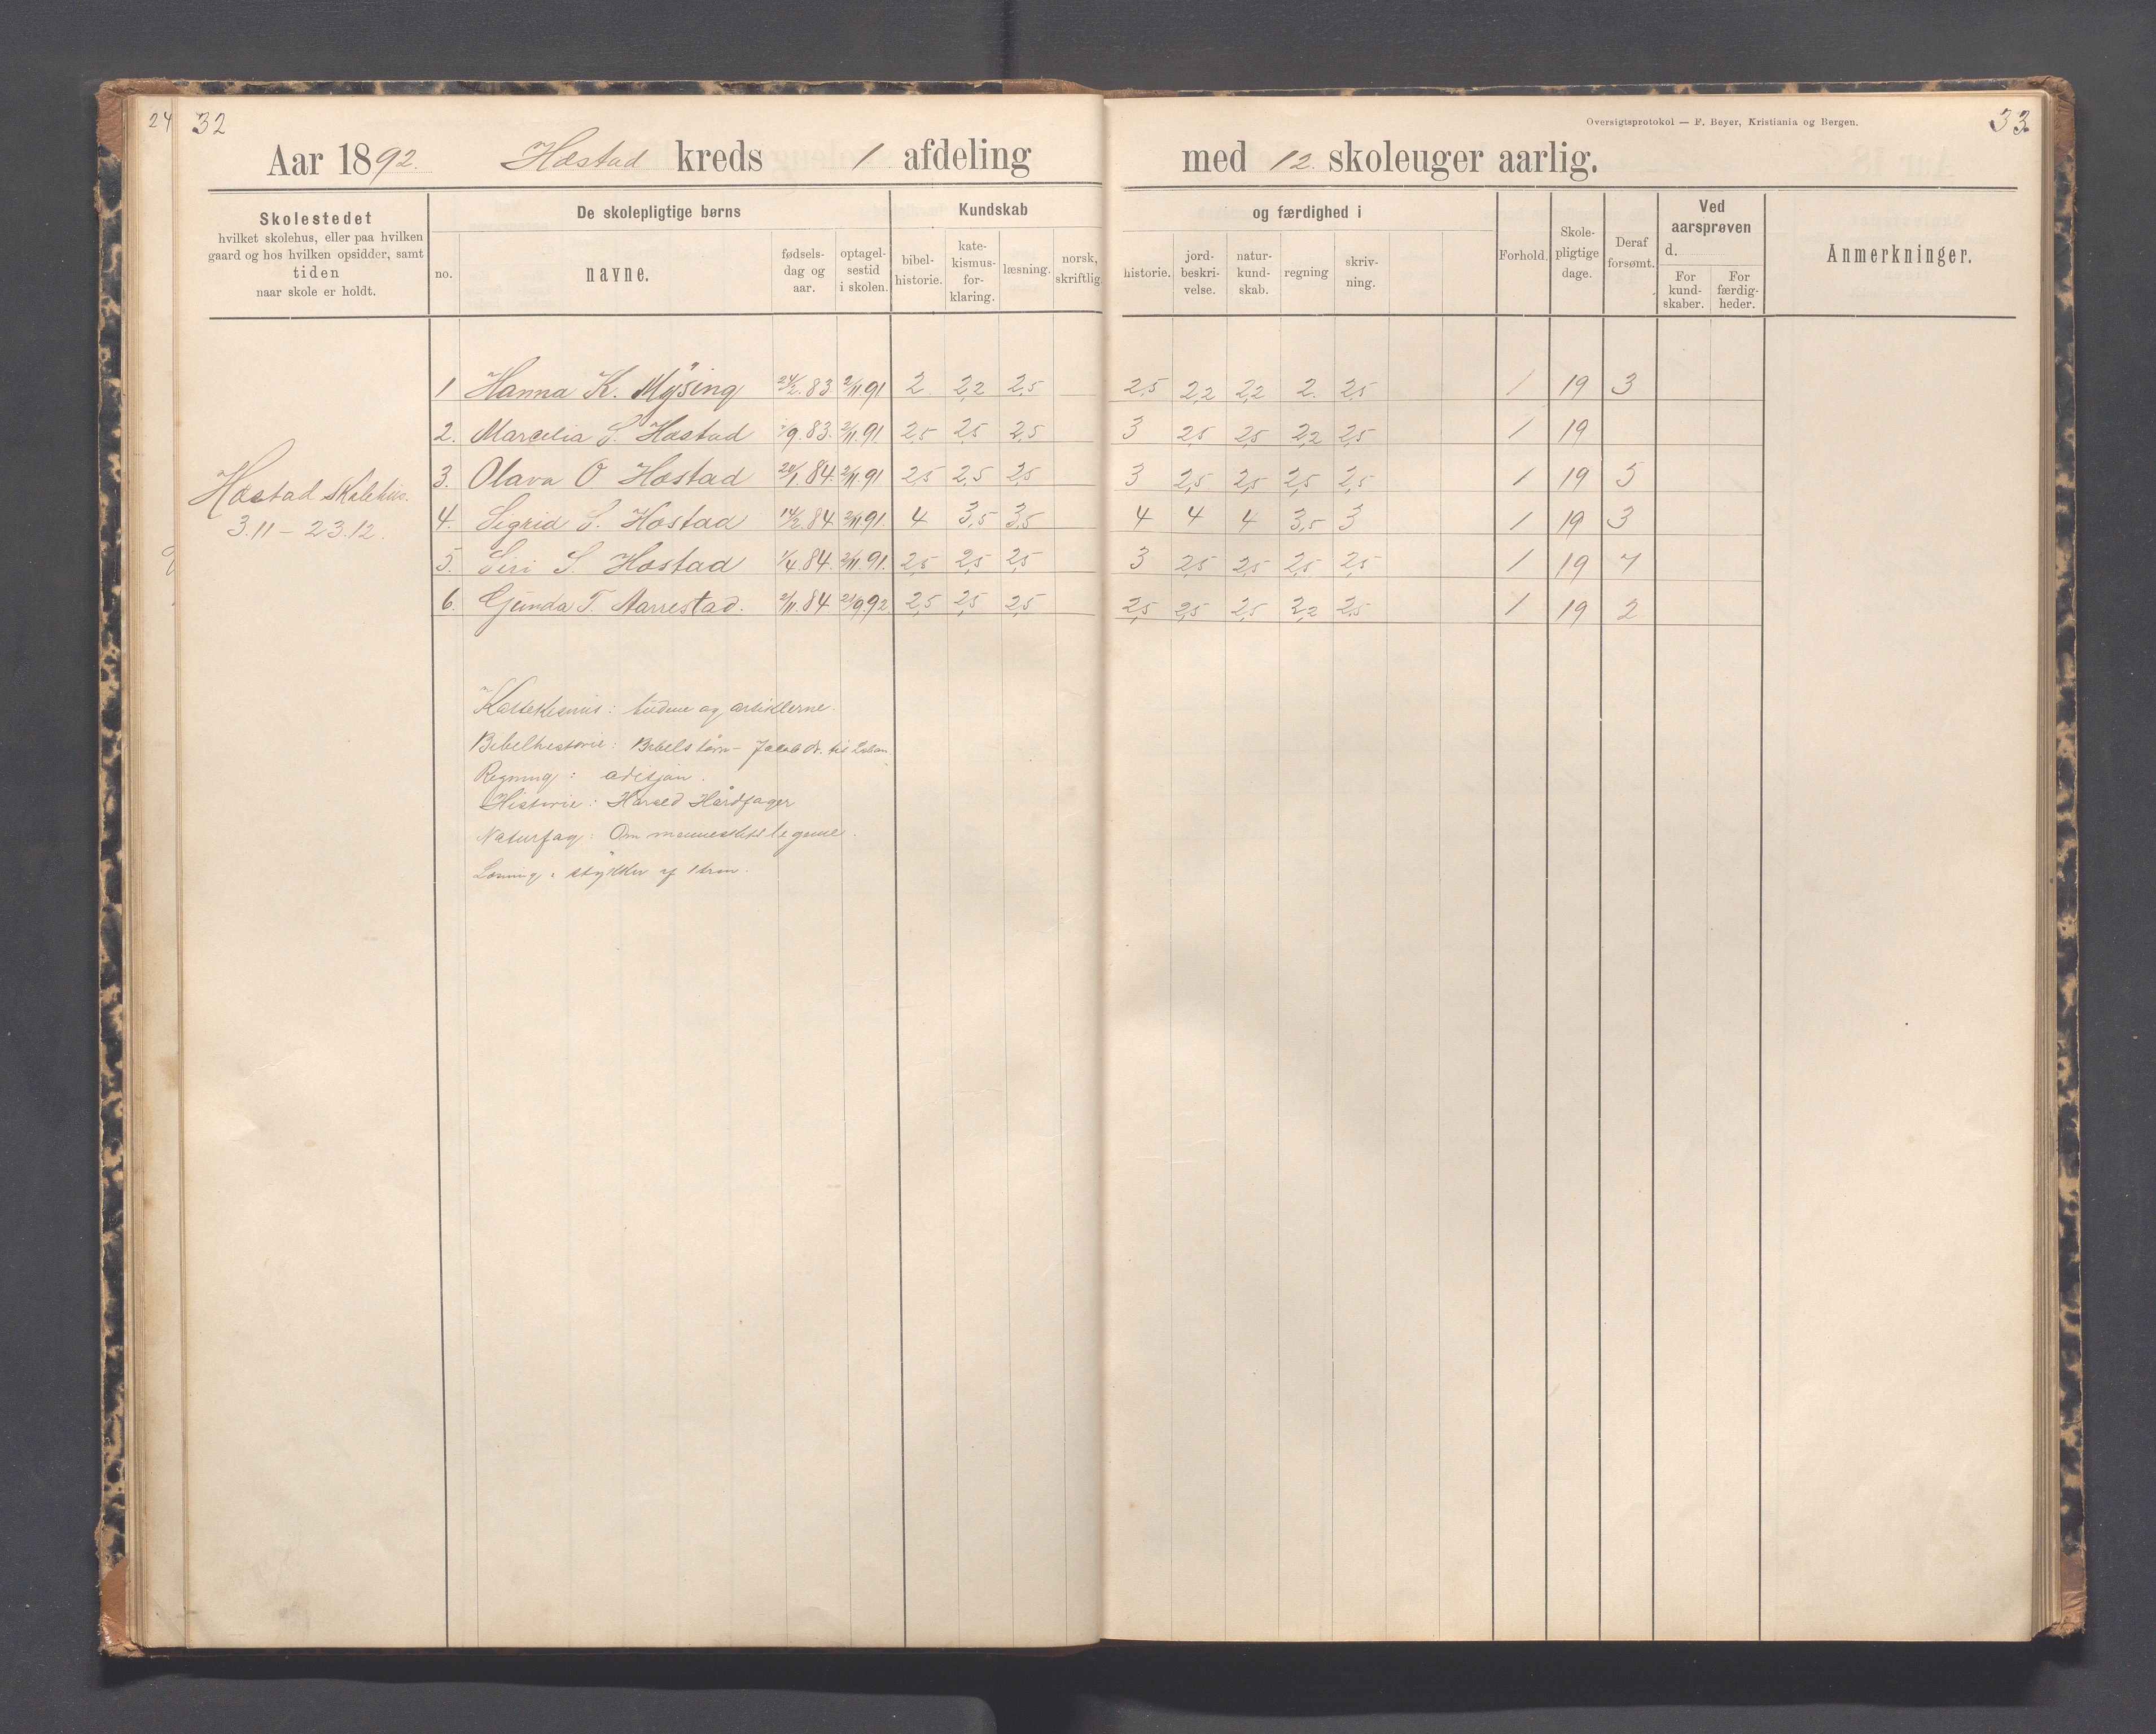 24 32
33
Oversigtsprotokol — F. Beyer, Kristiania og Bergen.
Aar 1892. Hæstad kreds 1. afdeling med 12. skoleuger aarlig.
Skolestedet
hvilket skolehus, eller paa hvilken
gaard og hos hvilken opsidder, samt
tiden
naar skole er holdt.
De skolepligtige børns
no.
navne.
fødsels-
dag og
aar.
optagel-
sestid
i skolen.
Kundskab
bibel-
historie.
kate-
kismus-
for-
klaring.
læsning.
norsk,
skriftlig.
og færdighed i
historie.
jord-
beskri-
velse.
natur-
kund-
skab.
regning
skriv-
ning.
Forhold.
Skole-
pligtige
dage.
Deraf
forsømt.
Ved
aarsprøven
d.
For
kund-
skaber.
For
færdig-
heder.
Anmerkninger.
1 Hanna K. Mÿsing 24/2.83 2/11.91 2 2,2 2,5 2,5 2,2 2,2 2. 2,5 1 19 3
2. Marcelia S. Hæstad /9.83. 2/11.91 2,5 2,5 2,5 3 2,5 2,5 2,2 2,5 1 19
3. Olava O Hæstad 20/1.84. 2/11.91 2,5 2,5 2,5 3 2,5 2,5 2,5 2,5 1 19 5
4. Sigrid S. Hæstad 14/2.84 2/11.91. 4 3,5 3,5 4 4 4 3,5 3 1 19 3
5. Siri S. Hæstad 1/4.84. 2/11.91. 2,5 2,5 2,5 3 2,5 2,5 2,5 2,5 1 19 7
6. Gunda T. Aarrestad. 2/11.84 21/9.92. 2,5 2,5 2,5 2,5 2,5 2,5 2,2 2,5 1 19 2
Hæstad skolehus.
3.11 – 23.12.
Katekismus: budene og artiklerne.
Bibelhistorie: Babels tårn – Jacob dr. til Laban
Regning: adisjon.
Historie: Harald Hårdfager
Naturfag: Om menneskets legeme.
Læsning: stÿkker af 1 trin.